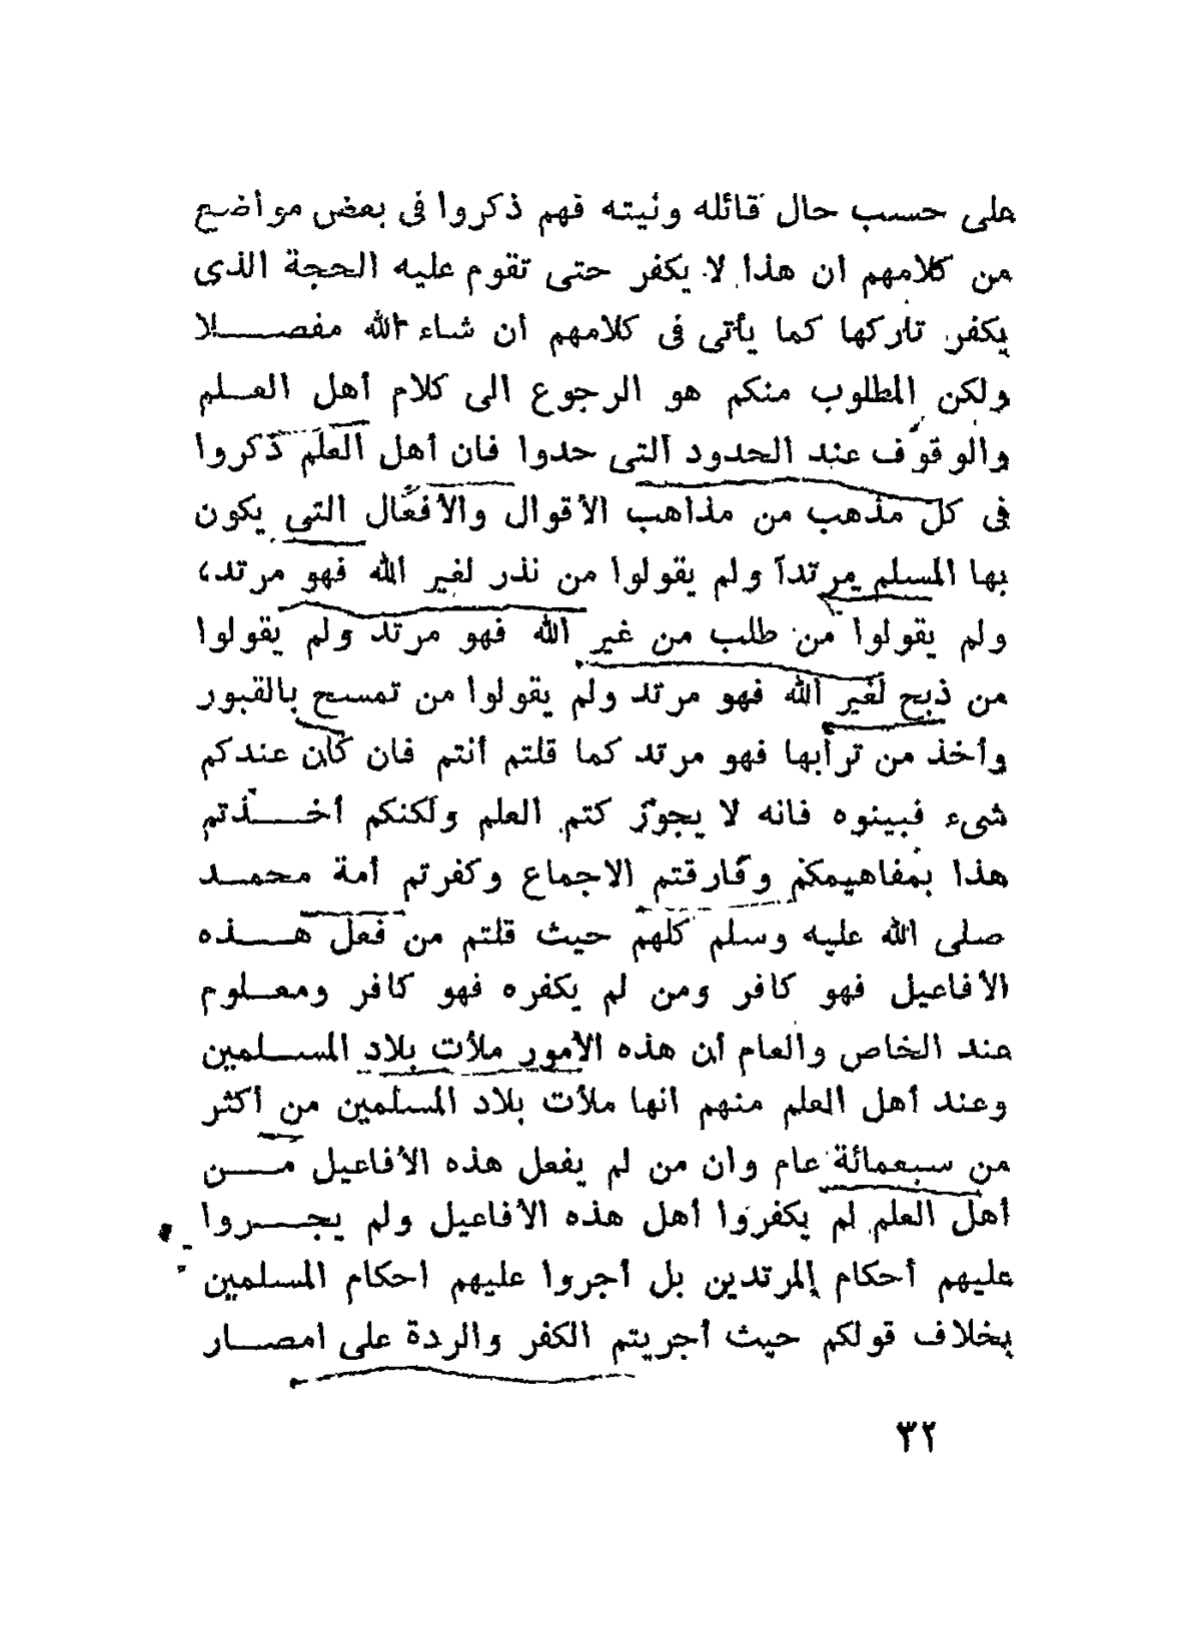 على حسب حال قائله ونيته فهم ذكروا فى بعض مواضع
من كلامهم ان هذا لا يكفر حتى تقوم عليه الحجة الذى
يكفر تاركها كما يأتى فى كلامهم أن شاء الله مفصلا
ولكن المطلوب منكم هو الرجوع الى كلام أهل العلم
والوقوف عند الحدود التى حدوا فان أهل العلم ذكروا
فى كل مذهب من مذاهب الأقوال والأفعال التى يكون
بها المسلم مرتدآ ولم يقولوا من نذر لغير الله فهو مرتد،
ولم يقولوا من طلب من غير الله فهو مرتد ولم يقولوا
من ذبح لغير الله فهو مرتد ولم يقولوا من تمسح بالقبور
وأخذ من ترابها فهو مرتد كما قلتم أنتم فان كان عندكم
شىء فبينوه فانه لا يجوز كتم العلم ولكنكم أخذتم
هذا بمفاهيمكم وفارقتم الاجماع وكفرتم أمة محمد
صلى الله عليه وسلم كلهم حيث قلتم من فعل هذه
الأفاعيل فهو كافر ومن لم يكفره فهو كافر ومعلوم
عند الخاص والعام أن هذه الأمور ملأت بلاد المسلمين
وعند أهل العلم منهم انها ملأت بلاد المسلمين من أكثر
من سبعمائة عام وان من لم يفعل هذه الأفاعيل من
أهل العلم لم يكفروا أهل هذه الأفاعيل ولم يجروا
عليهم أحكام المرتدين بل أجروا عليهم احكام المسلمين
بخلاف قولكم حيث أجريتم الكفر والردة على امصار
٣٢